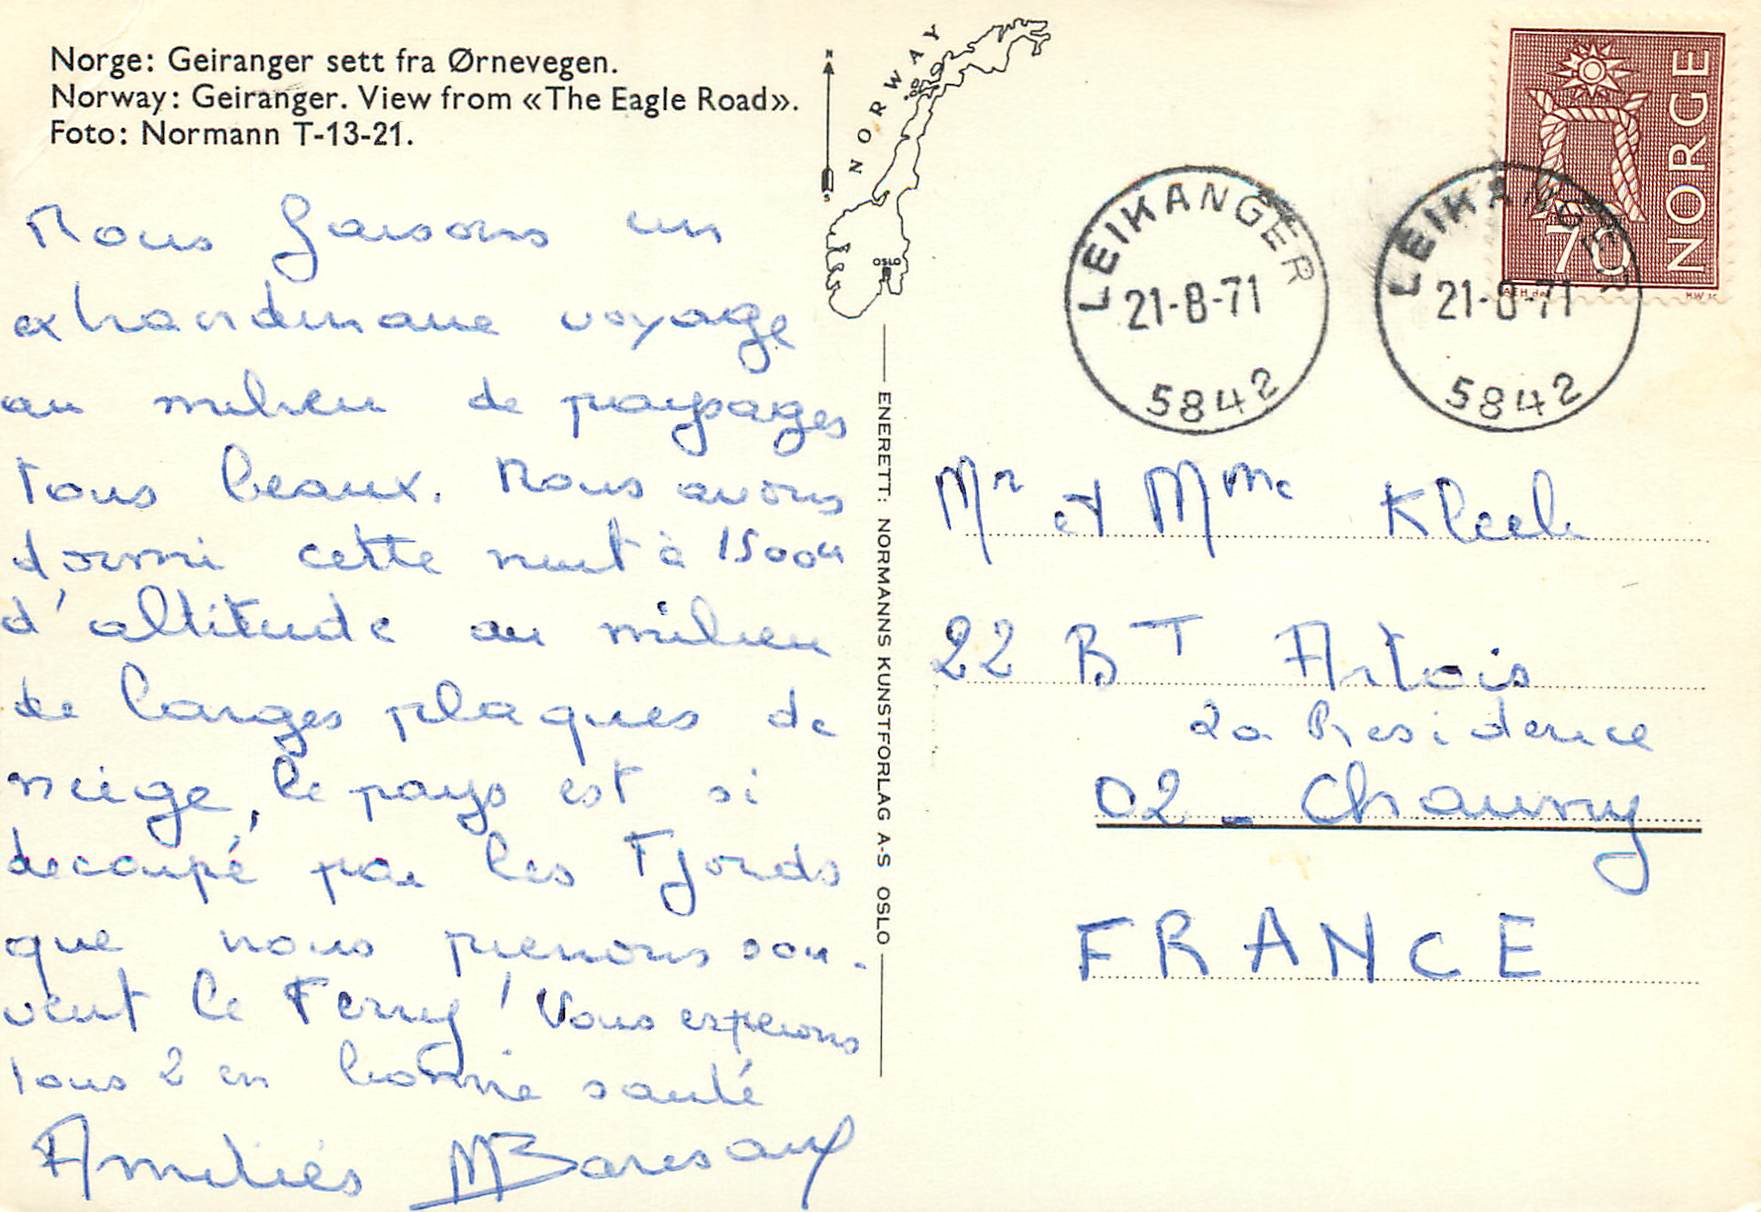 Norge: Geiranger sett fra Ørnevegen.
Norway: Geiranger. View from «The Eagle Road».
Foto: Normann T-13-21.
N
S
NORWAY
OSLO
NORGE
70
LEIKANGER
21-8-71
5842
LEIKANGER
21-8-71
5842
Nous faisons un
extraordinaire voyage
au milieu de paysages
tous beaux. Nous avons
dormi cette nuit à 1500m
d'altitude au milieu
de larges plaques de
neige, le pays est si
decoupé par les Fjords
que nous prenons sou-
vent le Ferry! Vous esperons
tous 2 en bonne santé
Amitiés
ENERETT: NORMANNS KUNSTFORLAG A-S OSLO
Mr et Mme
22 BT Artois
2a Residence
02 - Chauny
FRANCE